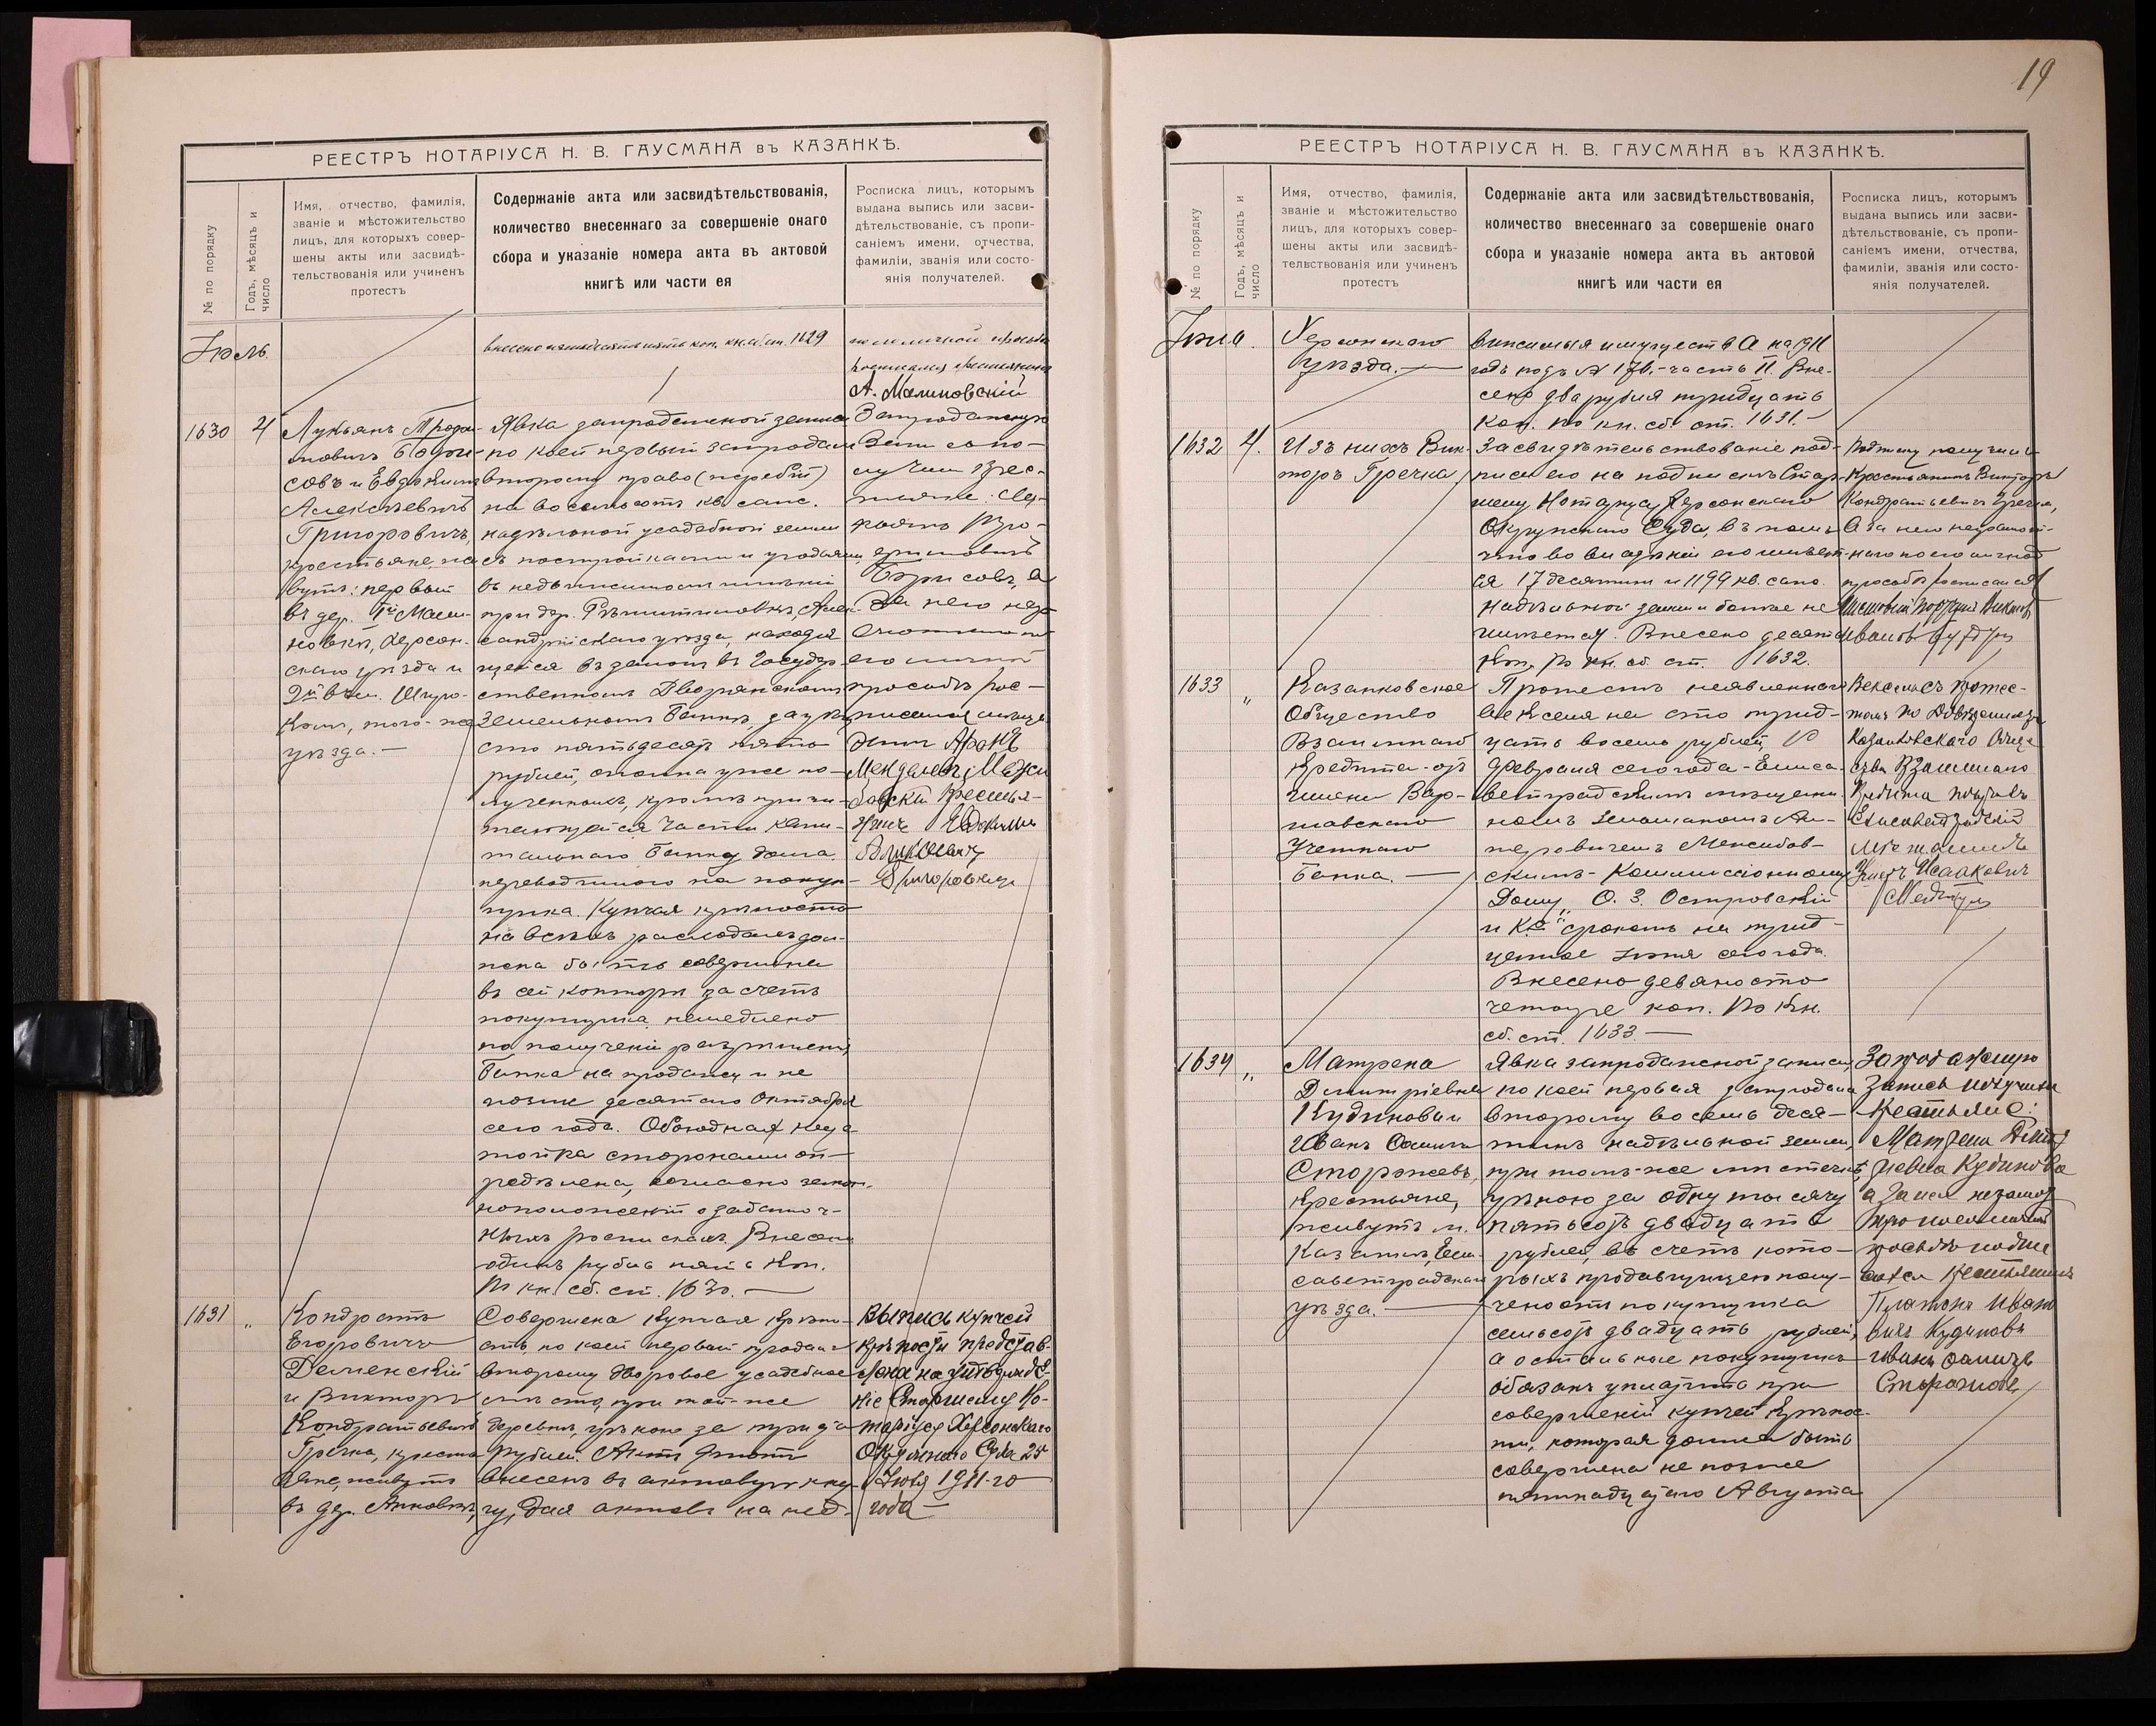 19
РЕЕСТРЪ НОТАРІУСА Н. В. ГАУСМАНА въ КАЗАНКѢ.
№ по порядку
Годъ, мѣсяцъ и
число
Имя, отчество, фамилія,
званіе и мѣстожительство
лицъ, для которыхъ совер-
шены акты или засвидѣ-
тельствованія или учиненъ
протестъ
Содержаніе акта или засвидѣтельствованія,
количество внесеннаго за совершеніе онаго
сбора и указаніе номера акта въ актовой
книгѣ или части ея
Росписка лицъ, которымъ
выдана выпись или засви-
дѣтельствованіе, съ пропи-
саніемъ имени, отчества,
фамиліи, званія или состо-
янія получателей.
Іюль
1629
личной просьбѣ
А. Малиновскій
1630 4
Лукьянъ
совъ и Евдокимъ
Алексѣевичъ
Григоровичъ,
крестьяне,
вутъ: первый
въ дер.
Херсон-
скаго уѣзда и
того-же
уѣзда. —
Явка запродажной записи
по коей первый запродалъ
второму право
на восемьсотъ кв. саж.
надѣльной усадебной земли
съ постройками и угодьями,
въ недвижимомъ имѣніи
при дер.
сандрійскаго уѣзда, находя-
щейся въ залогѣ въ Государ-
ственномъ Дворянскомъ
Земельномъ Банкѣ, за
сто пятьдесятъ пять
рублей,
лученныхъ, кромѣ причи-
тающейся части капи-
тальнаго Банку долга
переводимаго на покуп-
щика. Купчая крѣпость
на всѣхъ расходахъ дол-
жна быть совершена
въ сей конторѣ за счетъ
покупщика немедленно
по полученіи разрѣшенія
Банка на продажу и не
позже десятаго Октября
сего года. Обоюдная неус-
тойка сторонами оп-
редѣлена, согласно закон.
положеній о задаточ-
ныхъ роспискахъ. Внесено
одинъ рубль пять коп.
по кн. сб. ст. 1630. —
Запродажную
Запись по-
лучили крес-
тьяне:
Борисовъ, а
За него
его личной
просьбѣ рос-
писался
Аронъ
Кресть-
Евдокимъ
Григоровичъ
1631 "
Кондратъ
Егоровичъ
Деменскій
и Викторъ
Кондратьевичъ
Гречка, кресть-
яне, живутъ
въ дер. Анновкѣ,
Совершена купчая крѣпо-
сть, по коей первый продалъ
второму дворовое усадебное
мѣсто, при той-же
деревнѣ, цѣною за тридцать
рублей. Актъ этотъ
внесенъ въ актовую кни-
гу, для актовъ на нед-
Выпись купчей
крѣпости представ-
лена на утвержде-
ніе Старшему Но-
таріусу Херсонскаго
Окружнаго Суда 25
Іюля 1911-го
года —
РЕЕСТРЪ НОТАРІУСА Н. В. ГАУСМАНА въ КАЗАНКѢ.
№ по порядку
Годъ, мѣсяцъ и
число
Имя, отчество, фамилія,
званіе и мѣстожительство
лицъ, для которыхъ совер-
шены акты или засвидѣ-
тельствованія или учиненъ
протестъ
Содержаніе акта или засвидѣтельствованія,
количество внесеннаго за совершеніе онаго
сбора и указаніе номера акта въ актовой
книгѣ или части ея
Росписка лицъ, которымъ
выдана выпись или засви-
дѣтельствованіе, съ пропи-
саніемъ имени, отчества,
фамиліи, званія или состо-
янія получателей.
Іюля.
Херсонскаго
уѣзда. —
вижимыя имущества на 1911
годъ подъ № 176. - часть II. Вне-
сено два рубля тридцать
коп. по кн. сб. ст. 1631. —
1632 4.
Изъ нихъ Вик-
торъ Гречка,
Засвидѣтельствованіе под-
писи его на подпискѣ Стар-
шему Нотаріусу Херсонскаго
Окружнаго Суда, въ томъ
что во владѣніи его имѣет-
ся 17 десятинъ и 1199 кв. саж.
надѣльной земли и болѣе не
имѣется. Внесено десять
коп. по кн. сб. ст. 1632.
Подписку получилъ
Крестьянинъ Викторъ
Кондратьевичъ Гречка,
А за него неграмот-
наго по его личной
просьбѣ росписался
1633 "
Казанковское
Общество
Взаимнаго
Кредита - отъ
имени Вар-
шавскаго
Учетнаго
Банка. —
Протестъ неявленнаго
векселя на сто трид-
цать восемь рублей,
Февраля сего года - Елиса-
ветградскимъ мѣщани-
номъ
скимъ - Коммиссіонному
Дому „О. З. Островскій
и К°“ срокомъ на трид-
цатое Іюня сего года.
Внесено девяносто
четыре коп. по кн.
сб. ст. 1633 —
Вексель съ протес-
томъ по Довѣренности
Казанковскаго Обще-
ства Взаимнаго
Кредита получилъ
Елисаветградскій
мѣщанинъ
Исааковичъ
1634 "
Матрена
Дмитріевна
Кудинова и
Иванъ
Сторожевъ,
крестьяне,
живутъ м.
Казанкѣ, Ели-
саветградскаго
уѣзда. —
Явка запродажной записи,
по коей первая запродала
второму восемь деся-
тинъ надѣльной земли,
при томъ-же мѣстечкѣ,
цѣною за одну тысячу
пятьсотъ двадцать
рублей, въ счетъ кото-
рыхъ продавщицею полу-
чено отъ покупщика
семьсотъ двадцать рублей,
а остальные покупщикъ
обязанъ уплатить при
совершеніи купчей крѣпос-
ти, которая должна быть
совершена не позже
пятнадцатаго Августа
Запродажную
Запись получили
Крестьяне:
Матрена Дмит-
ріевна Кудинова
а за нея неграмот-
ную по ея личной
просьбѣ подпи-
сался Крестьянинъ
Платонъ Ивано-
вичъ Кудиновъ
Иванъ
Сторожевъ